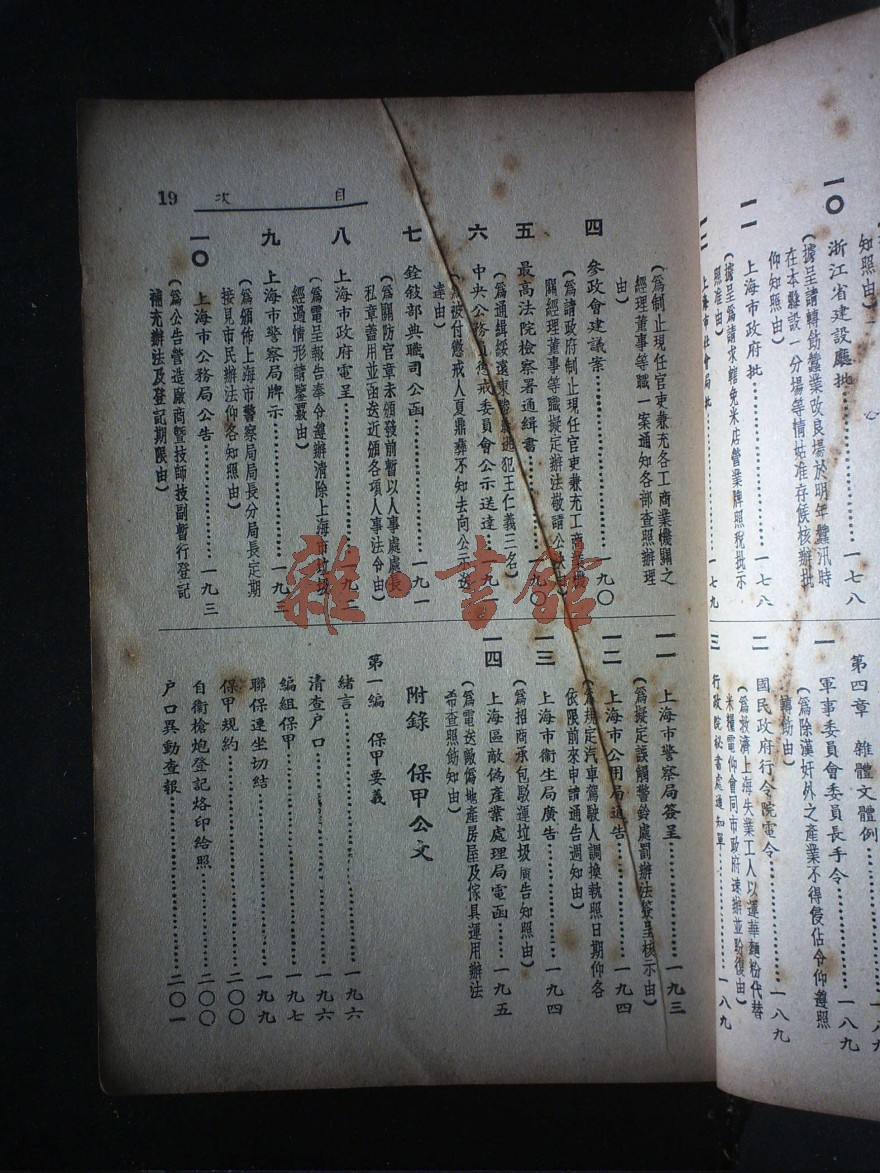 知照由)
一〇 浙江省建設廳批……一七八
(據呈請轉飭蠶業改良場於明年蠶汛時
在本縣設一分場等情姑准存候核辦批
仰知照由)
一一 上海市政府批……一七八
(據呈爲請求轄免米店營業牌照稅批示
照准由)
一二 上海市社會局批……一七九
第四章 雜體文體例……一八九
一 軍事委員會委員長手令……一八九
(爲除漢奸外之產業不得侵佔令仰遵照
轉飭由)
二 國民政府行令院電令……一八九
(爲救濟上海失業工人以運華麵粉代替
米糧電仰會同市政府速辦並盼復由)
三 行政院祕書處通知單……一八九
目 次 19
(爲制止現任官吏兼充各工商業機關之
經理董事等職一案通知各部查照辦理
由)
四 參政會建議案……一九〇
(爲請政府制止現任官吏兼充工商業機
關經理董事等職擬定辦法敬請公決由)
五 最高法院檢察署通緝書……一九〇
(爲通緝綏遠東勝縣逃犯王仁義三名)
六 中央公務員懲戒委員會公示送達……一九一
(爲被付懲戒人夏鼎彝不知去向公示送
達由)
七 銓敍部典職司公函……一九一
(爲關防官章未頒發前暫以人事處處長
私章蓋用並函送近頒各項人事法令由)
八 上海市政府電呈……一九二
(爲電呈報告奉令遵辦清除上海市垃圾
經過情形請鑒覈由)
九 上海市警察局牌示……一九三
(爲頒佈上海市警察局局長分局長定期
接見市民辦法仰各知照由)
一〇 上海市公務局公告……一九三
(爲公告營造廠商暨技師技副暫行登記
補充辦法及登記期限由)
一一 上海市警察局簽呈……一九三
(爲擬定誤觸警鈴處罰辦法簽呈核示由)
一二 上海市公用局通告……一九四
(爲規定汽車駕駛人調換執照日期仰各
依限前來申請通告週知由)
一三 上海市衛生局廣告……一九四
(爲招商承包駁運垃圾廣告知照由)
一四 上海區敵偽產業處理局電函……一九五
(爲電送敵偽地產房屋及傢具運用辦法
希查照飭知由)
附錄 保甲公文
第一編 保甲要義
緒言……一九六
清查户口……一九六
編組保甲……一九七
聯保連坐切結……一九九
保甲規約……二〇〇
自衛槍炮登記烙印給照……二〇〇
户口異動查報……二〇一
雜·書館